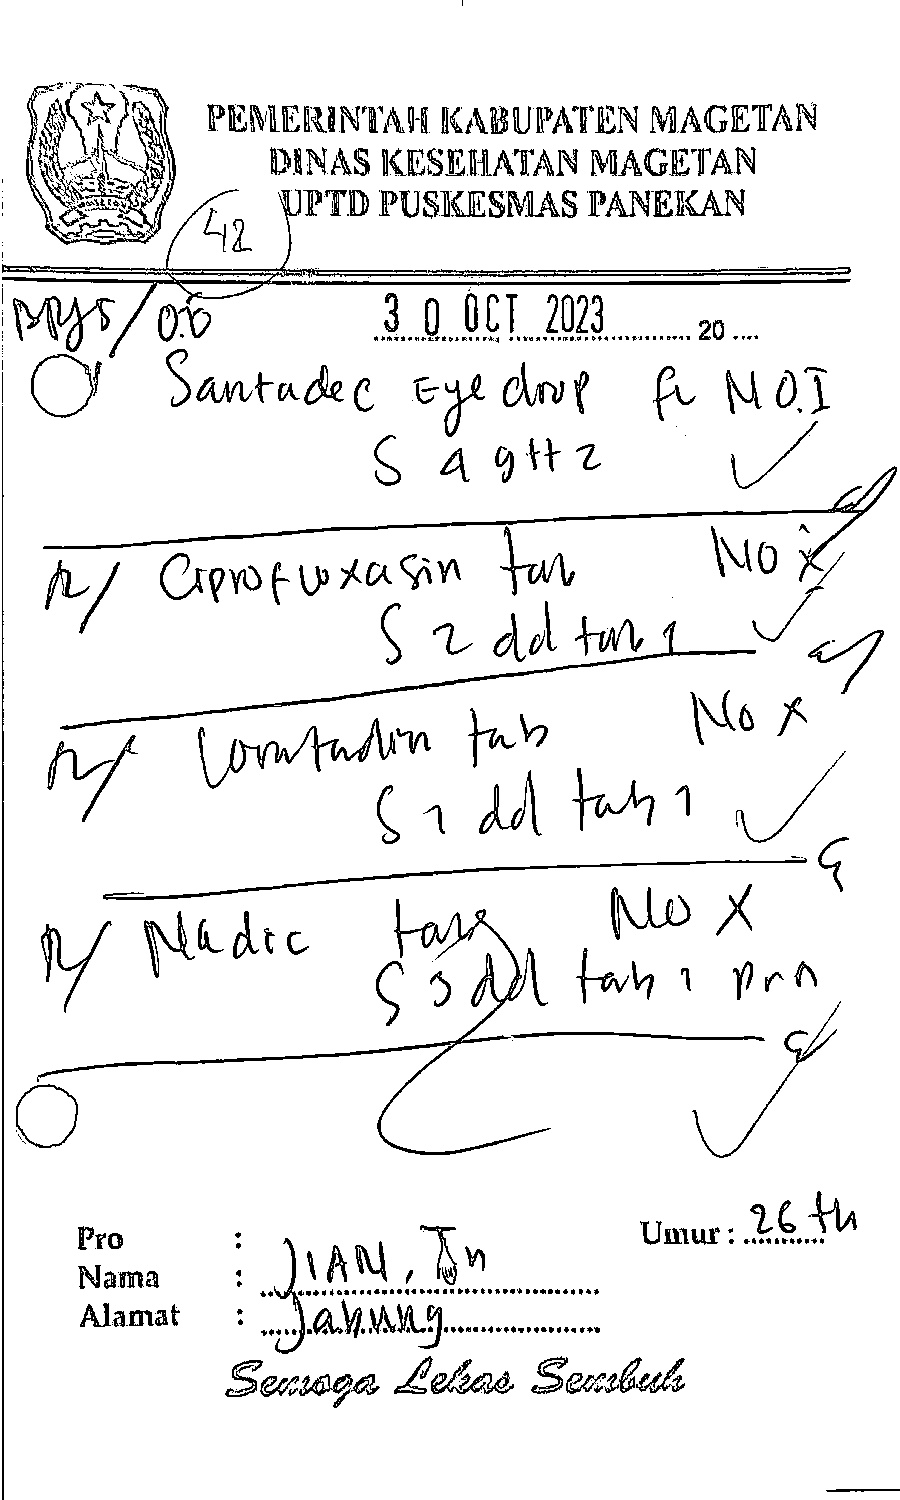 PEMERINTAH KABUPATEN MAGETAN
DINAS KESEHATAN MAGETAN
UPTD PUSKESMAS PANEKAN
42
BPJS/
30 OCT 2023 20....
Santadec Eye drop fl NO.I
S 4 gtt 2
R/ Ciprofloxasin tab No X
S 2 dd tab 1
R/ Loratadin tab No X
S 1 dd tab 1
R/ Nadic tab No X
S 3 dd tab 1 prn
Pro :
Umur : 26 th
Nama : JIAN, Tn
Alamat : Jabung
Semoga Lekas Sembuh